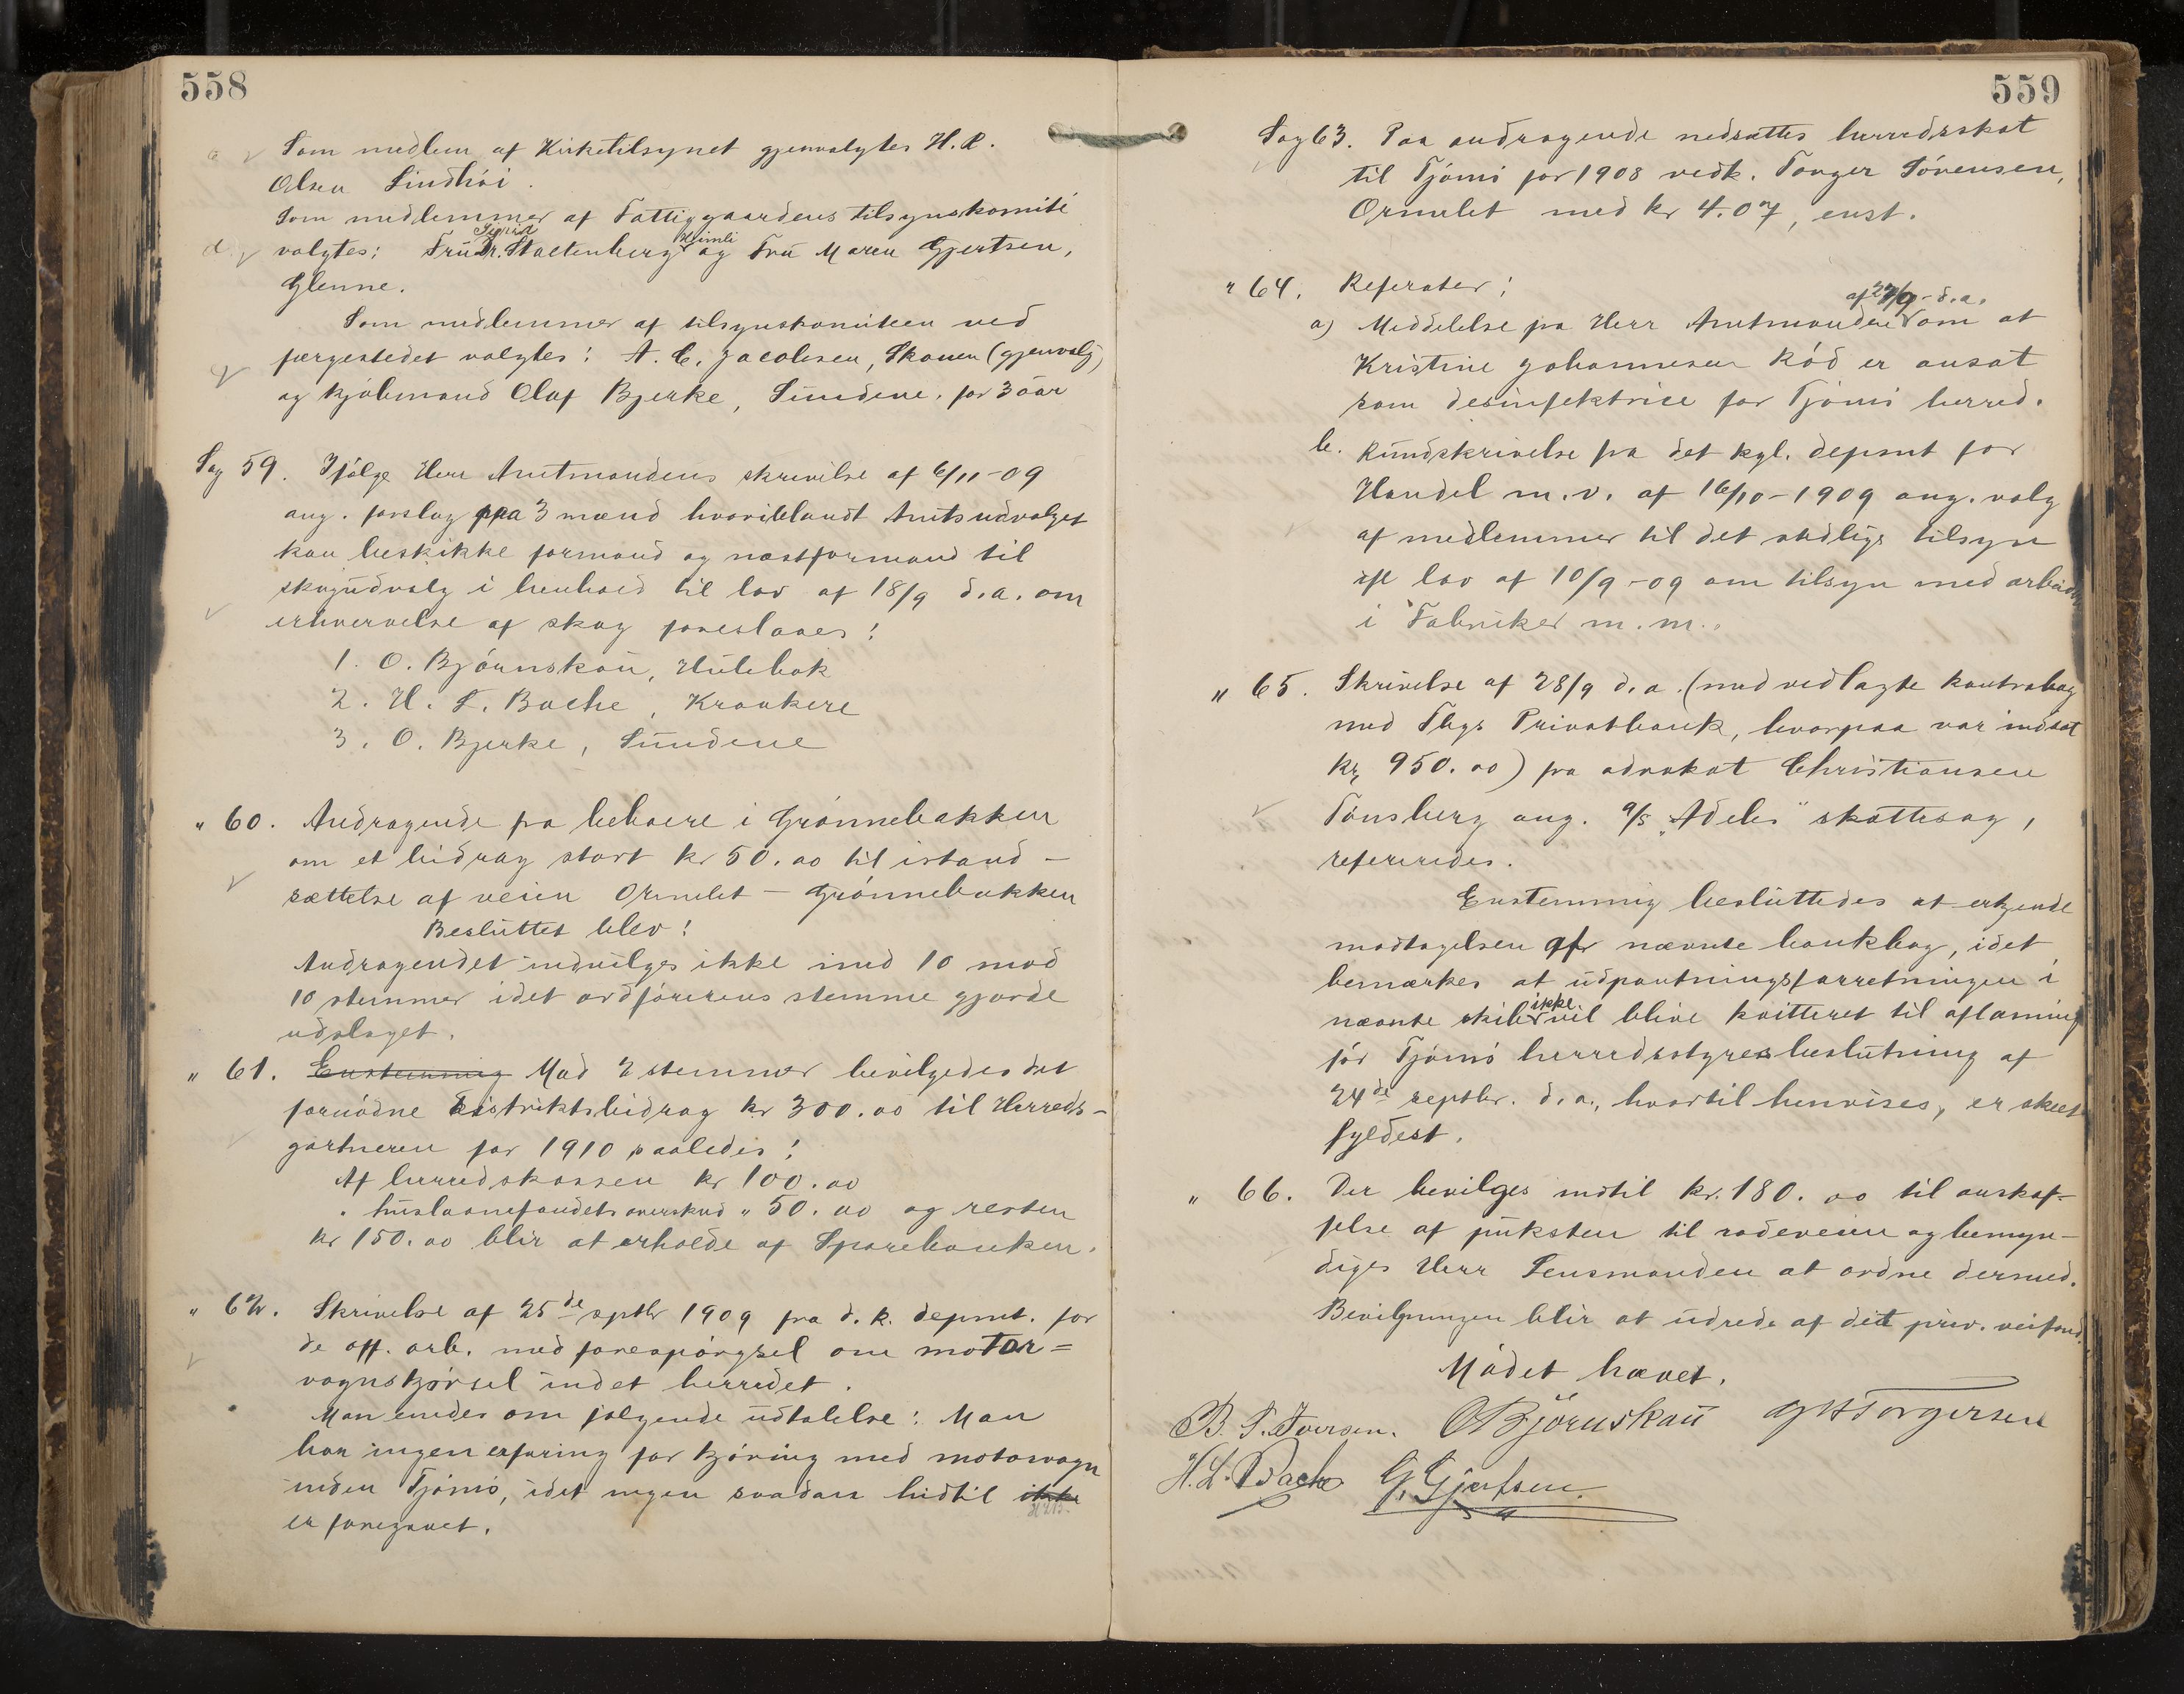 558
Som medlem af Kirketilsynet gjenvalgtes H. R.
Olsen Lindhöi.
Som medlemmer af Fattiggaardens tilsynskomité
valgtes: Frú Sigrid Dr. Stoltenberg Heimli og Frú Maren Gjertsen,
Glenne.
Som medlemmer af tilsynskomiteen ved
færgestedet valgtes: A. C. Jacobsen, Skauen (gjenvalg)
og kjöbmand Olaf Bjerke, Sundene, for 3 aar
Sag 59. Ifölge Herr Amtmandens skrivelse af 6/11-09
ang. forslag paa 3 mænd hvoriblandt Amtsudvalget
kan beskikke formand og næstformand til
skogudvalg i henhold til lov af 18/9 d.a. om
erhvervelse af skog foreslaaes:
1. O. Björnskau, Hulebak
2. H. L. Bache, Kraakere
3. O. Bjerke, Sundene
" 60. Andragende fra beboere i Grönnebakken
om et bidrag stort kr 50.00 til istand-
sættelse af veien Ormelet - Grönnebakken
Besluttet blev:
Andragendet indvilges ikke med 10 mod
10 stemmer idet ordförerens stemme gjorde
udslaget.
" 61. Enstemmig Mod 2 stemmer bevilgedes det
fornödne distriktsbidrag kr 300.00 til Herreds-
gartneren for 1910 saaledes:
Af herredskassen kr 100.00
" huslaanefondets overskud " 50.00 og resten
kr 150.00 blir at erholde af Sparebanken.
" 62. Skrivelse af 25de sptbr 1909 fra d. k. depmt. for
de off. arb. med forespörgsel om motor=
vognskjörsel indet herredet.
Man enedes om fölgende udtalelse: Man
har ingen erfaring for kjöring med motorvogn
inden Tjömö, idet ingen saadan hidtil ikke
er foregaaet.
559
Sag 63. Paa andragende nedsattes herredsskat
til Tjömö for 1908 vedk. Torger Sörensen,
Ormelet med kr 4.07, enst.
" 64. Referater:
a) Meddelelse fra Herr Amtmanden af 27/9 - d.a. om at
Kristine Johannesen Röd er ansat
som desinfektrice for Tjömö herred.
b. Rundskrivelse fra det kgl. depmt for
Handel m.v. af 16/10-1909 ang. valg
af medlemmer til det stedlige tilsyn
ifl lov af 10/9-09 om tilsyn med arbeide
i Fabriker m.m.
" 65. Skrivelse af 28/9 d.a. (med vedlagte kontrabog
med Tbgs Privatbank, hvorpaa var indsat
kr 950.00) fra advokat Christiansen
Tönsberg ang. a/s "Adelei" skattesag,
refereredes.
Enstemmig besluttedes at erkjende
modtagelsen af nævnte bankbog, idet
bemærkes at udpantningsforretningen i
nævnte skib ikke vil blive kvitteret til aflæsning
för Tjömö herredsstyres beslutning af
24de septbr. d.a., hvortil henvises, er skeet
fyldest.
" 66. Der bevilges indtil kr. 180.00 til anskaf-
felse af puksten til rodeveien og bemyn-
diges Herr Lensmanden at ordne dermed.
Bevilgningen blir at udrede af det priv. veifond.
Mödet hævet.
B. T. Iversen. O Björnskau A H Torgersen
H. L. Bache G. Gjertsen.